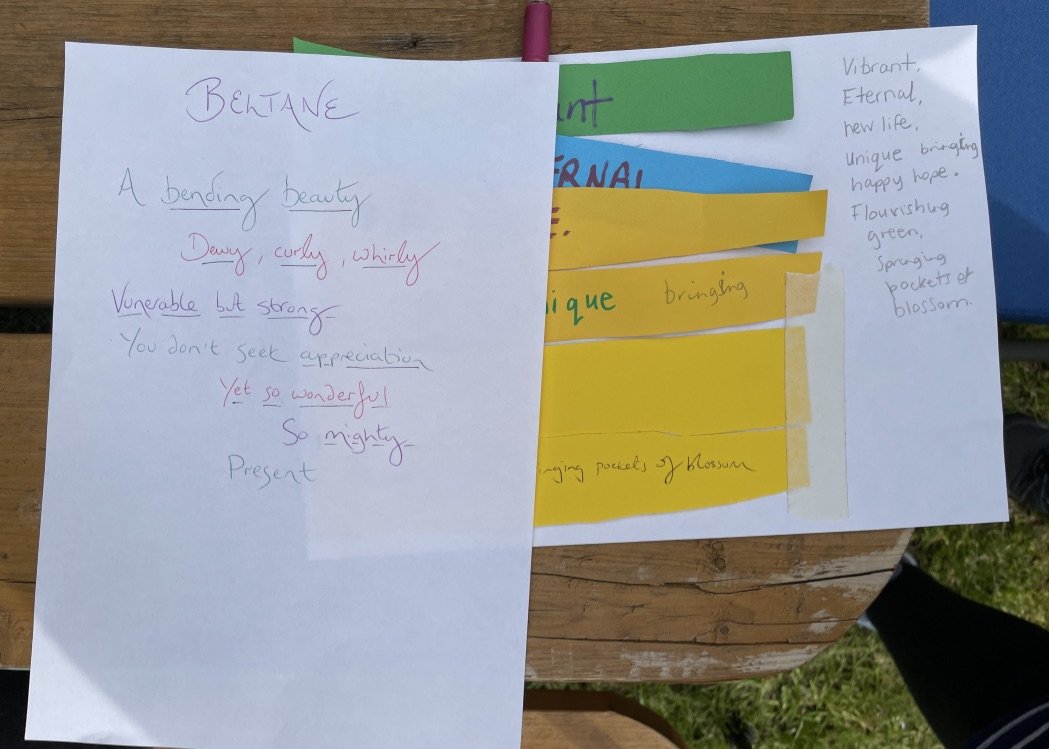 BELTANE
A bending beauty
Dewy, curly, whirly
Vunerable but strong
You don't seek appreciation
Yet so wonderful
So mighty
Present
ant
ERNAL
E.
ique bringing
inging pockets of blossom
Vibrant,
Eternal,
new life,
unique bringing
happy hope.
Flourishing
green,
Springing
pockets of
blossom.